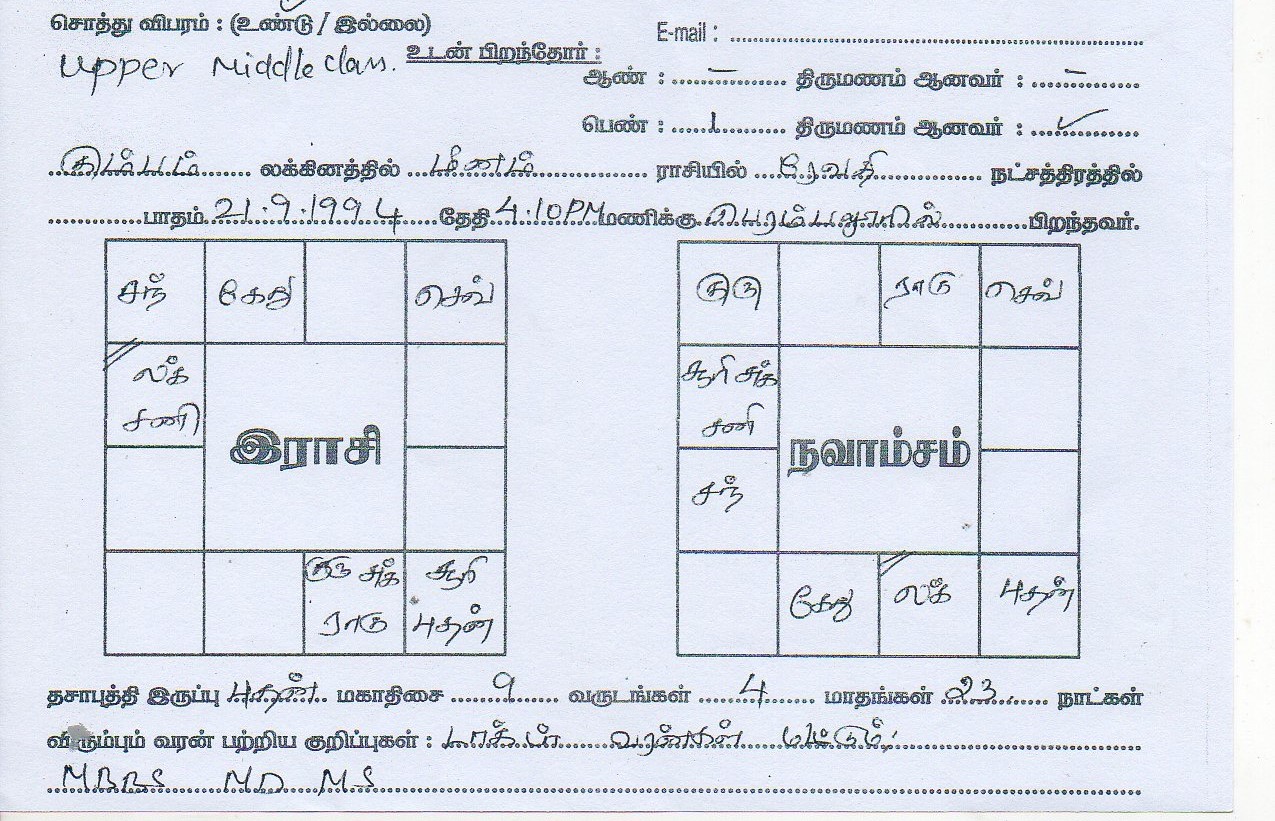 சொத்து விபரம் : (உண்டு / இல்லை)
E-mail : ........................
Upper Middle class. உடன் பிறந்தோர் :
ஆண் : ..... – ......... திருமணம் ஆனவர் : ..... – .........
பெண் : ..... 1 ......... திருமணம் ஆனவர் : ..... ✓ .........
கும்பம் லக்கினத்தில் மீனம் ராசியில் ரேவதி நட்சத்திரத்தில்
.............பாதம் 21.9.1994 தேதி 4:10PM மணிக்கு பெரம்பலூரில் பிறந்தவர்.
சந் கேது செவ்
லக் சனி
இராசி
குரு சுக் ராகு
சூரி புதன்
குரு ராகு செவ்
சூரி சுக் சனி
நவாம்சம்
சந்
கேது லக் புதன்
தசாபுத்தி இருப்பு புதன் மகாதிசை 9 வருடங்கள் 4 மாதங்கள் 23 நாட்கள்
விரும்பும் வரன் பற்றிய குறிப்புகள் : டாக்டர் வரன்கள் மட்டும்.
MBBS MD MS